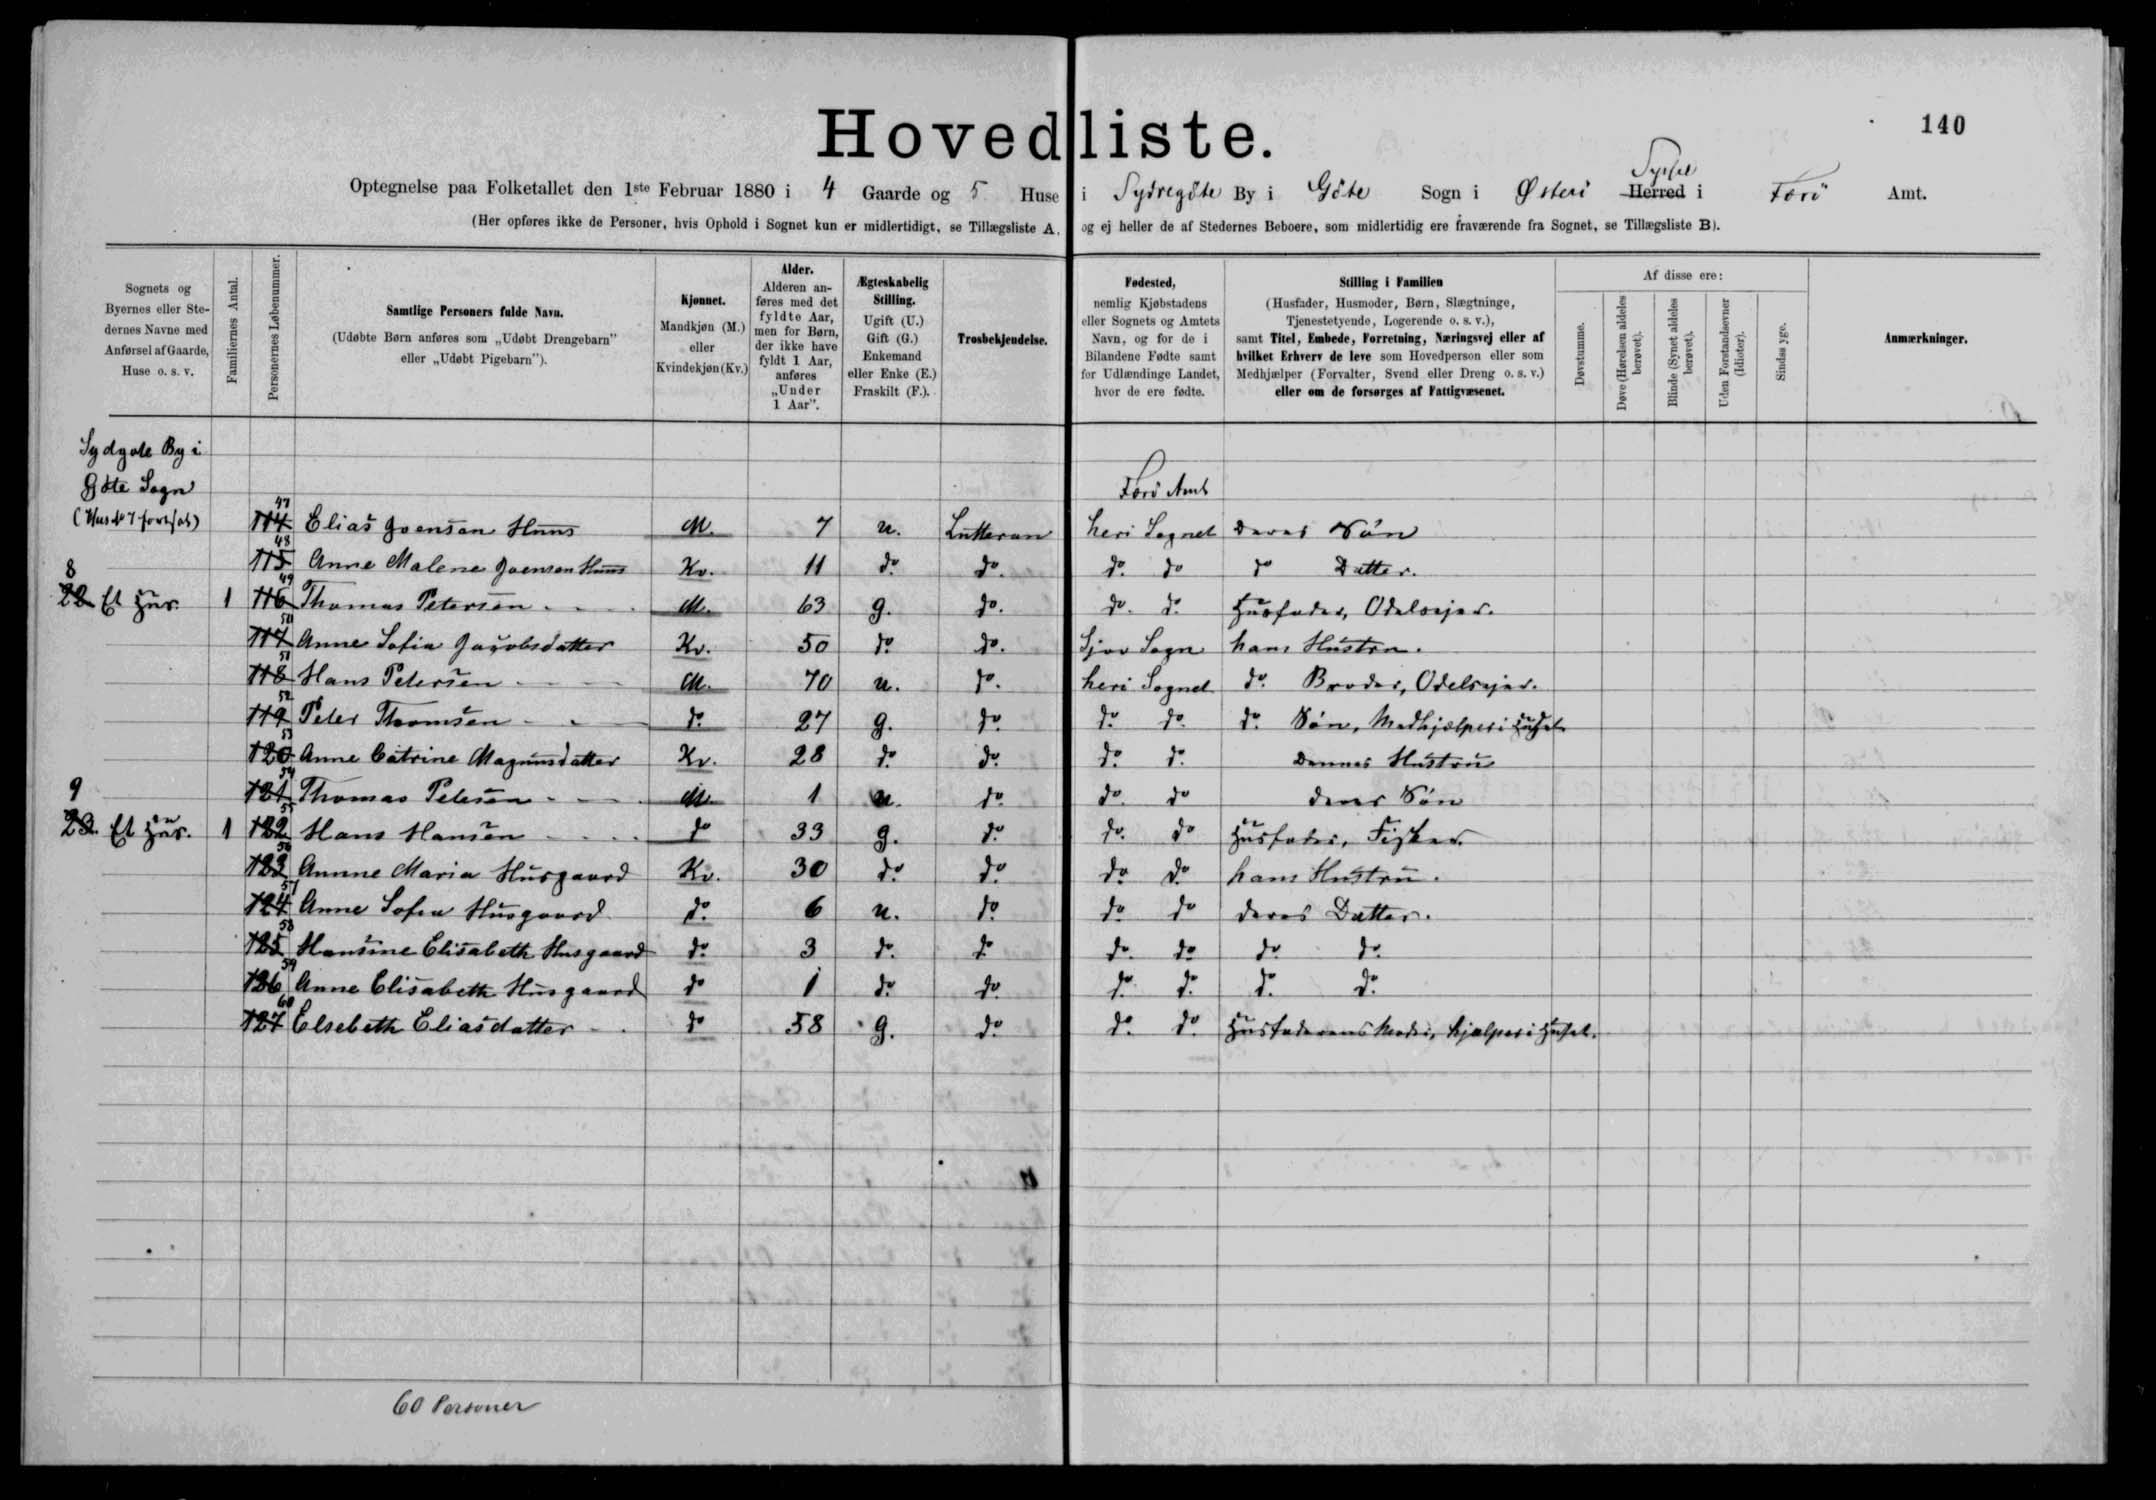 Hovedliste.
140
Optegnelse paa Folketallet den 1ste Februar 1880 i 4 Gaarde og 5 Huse i Sydregöte By i Göte Sogn i Østerö Herred Syssel i Færö Amt.
(Her opføres ikke de Personer, hvis Ophold i Sognet kun er midlertidigt, se Tillægsliste A, og ej heller de af Stedernes Beboere, som midlertidig ere fraværende fra Sognet, se Tillægsliste B).
Sognets og Byernes eller Stedernes Navne med Anførsel af Gaarde, Huse o. s. v.
Familiernes Antal.
Personernes Løbenummer.
Samtlige Personers fulde Navn.
(Udøbte Børn anføres som „Udøbt Drengebarn" eller „Udøbt Pigebarn").
Kjønnet.
Mandkjøn (M.) eller Kvindekjøn (Kv.)
Alder.
Alderen anføres med det fyldte Aar, men for Børn, der ikke have fyldt 1 Aar, anføres „Under 1 Aar".
Ægteskabelig Stilling.
Ugift (U.) Gift (G.) Enkemand eller Enke (E.) Fraskilt (F.).
Trosbekjendelse.
Fødested,
nemlig Kjøbstadens eller Sognets og Amtets Navn, og for de i Bilandene Fødte samt for Udlændinge Landet, hvor de ere fødte.
Stilling i Familien
(Husfader, Husmoder, Børn, Slægtninge, Tjenestetyende, Logerende o. s. v.),
samt Titel, Embede, Forretning, Næringsvej eller af hvilket Erhverv de leve som Hovedperson eller som Medhjælper (Forvalter, Svend eller Dreng o. s. v.)
eller om de forsørges af Fattigvæsenet.
Af disse ere:
Døvstumme.
Døve (Hørelsen aldeles berøvet).
Blinde (Synet aldeles berøvet).
Uden Forstandsevner (Idioter).
Sindssyge.
Anmærkninger.
Sydgøte By i
Göte Sogn
Færö Amt
(Hus No 7 fortsat) 114 47 Elias Joensen Huus M. 7 u. Lutheran heri Sognet deres Søn
115 48 Anne Malene Joensen Huus Kv. 11 do. do. do. do do Datter.
8
22 Et Hus. 1 116 49 Thomas Petersen M. 63 g. do. do. do. Husfader, Odelsejer.
117 50 Anne Sofia Jacobsdatter Kv. 50 do do. Sjov Sogn hans Hustru.
118 51 Hans Petersen M. 70 u. do. heri Sognet do. Broder, Odelsejer.
119 52 Peter Thomsen do. 27 g. do. do. do. do. Søn, Medhjælper i Huset
120 53 Anne Catrine Magnusdatter Kv. 28 do. do. do. do. Dennes Hustru
9
121 54 Thomas Petersen M. 1 u. do. do. do deres Søn
23. Et Hus. 1 122 55 Hans Hansen do 33 g. do. do. do Husfader, Fisker.
123 56 Annne Maria Husgaard Kv. 30 do. do. do. do. hans Hustru.
124 57 Anne Sofia Husgaard do. 6 u. do. do. do deres Datter.
125 58 Hansine Elisabeth Husgaard do. 3 do. do do. do. do. do.
126 59 Anne Elisabeth Husgaard do 1 do. do. do. do. do. do.
127 60 Elsebeth Eliasdatter do 58 g. do. do. do. Husfaderens Moder, hjælper i Huset.
60 Personer